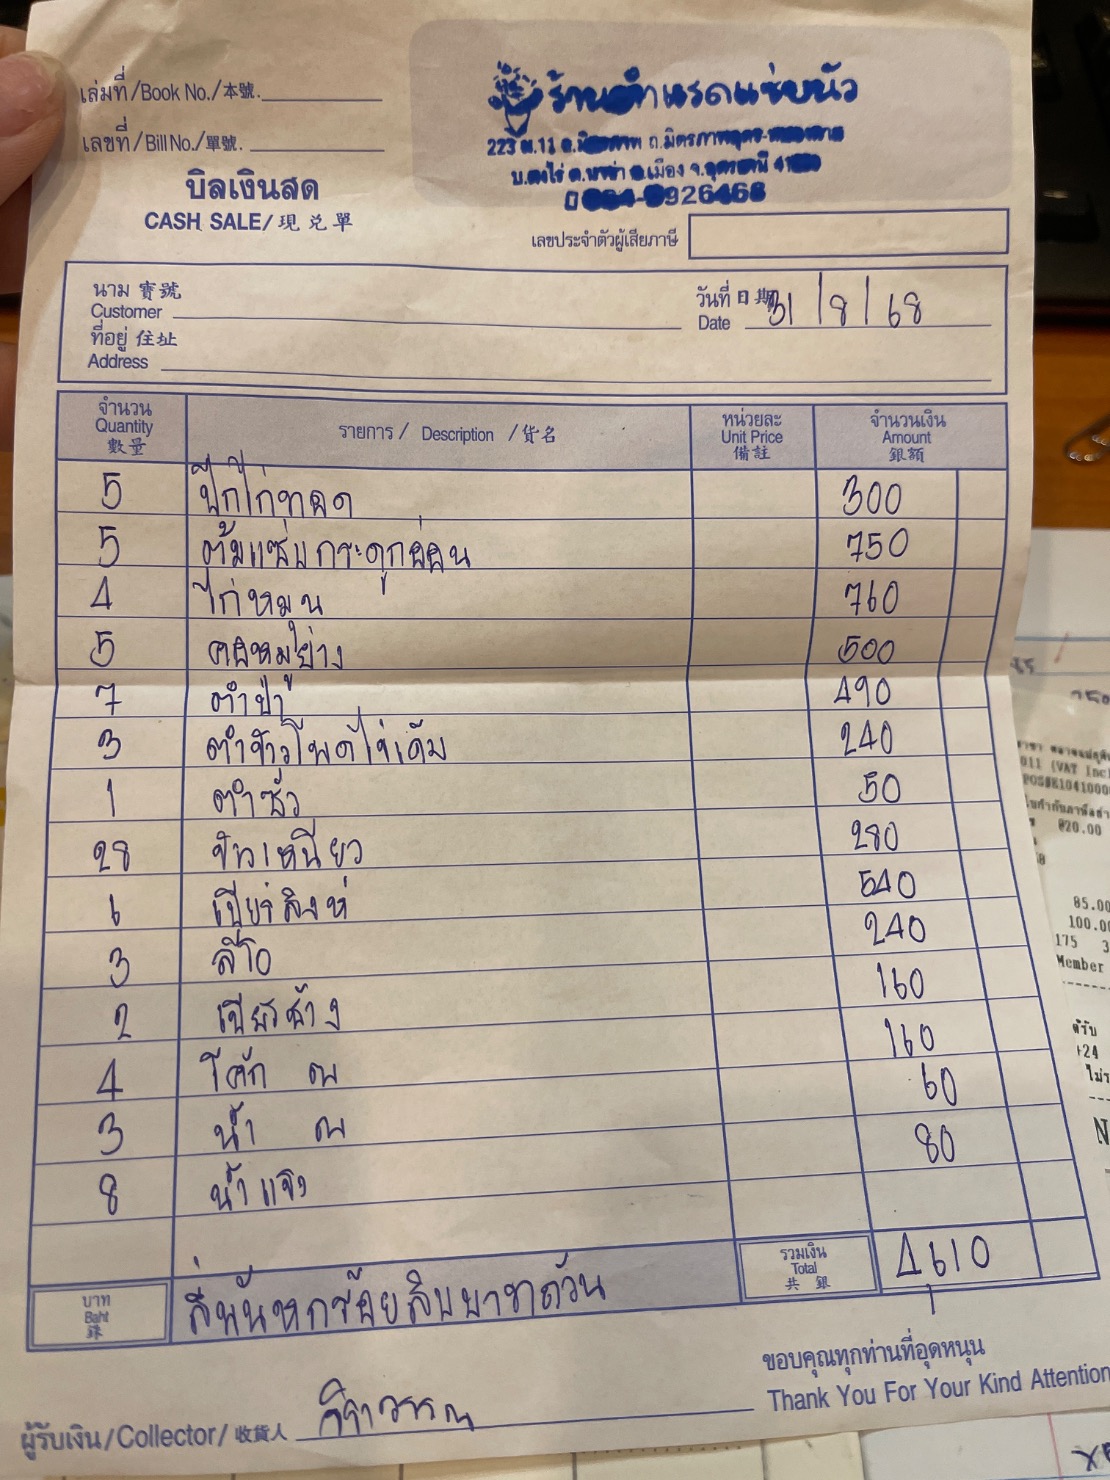 เล่มที่/Book No./本號.
เลขที่/Bill No./單號.
บิลเงินสด
CASH SALE/現兌單
223 ม.11 ถ.มิตรภาพ
อ.เมือง จ.อุดรธานี
926468
เลขประจำตัวผู้เสียภาษี
นาม 寶號
Customer
วันที่ 日期 31/8/68
Date
ที่อยู่ 住址
Address
จำนวน รายการ / Description / 貨名 หน่วยละ จำนวนเงิน
Quantity Unit Price Amount
數量 備註 銀額
5 ปีกไก่ทอด 300
5 ต้มแซ่บกระดูกอ่อน 750
4 ไก่หมุน 760
5 คอหมูย่าง 500
7 ตำป่า 490
3 ตำข้าวโพดไข่เค็ม 240
1 ตำซั่ว 50
28 ข้าวเหนียว 280
6 เบียร์สิงห์ 540
3 ลีโอ 240
2 เบียร์ช้าง 160
4 โค้ก 160
3 น้ำ 60
8 น้ำแข็ง 80
บาท
Baht
銖
สี่พันหกร้อยสิบบาทถ้วน
รวมเงิน
Total
共銀
4610
ขอบคุณทุกท่านที่อุดหนุน
Thank You For Your Kind Attention
ผู้รับเงิน/Collector/收貨人
011 (VAT Incl
฿20.00
85.00
100.00
175 3
Member